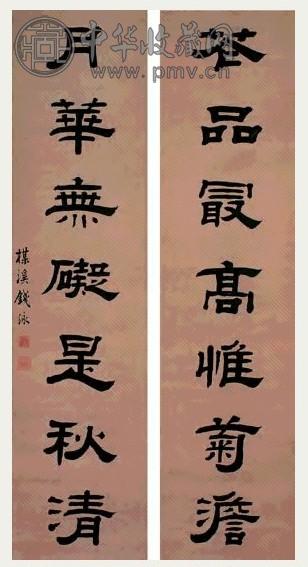 中华收藏网
www.pmv.cn
花品最高惟菊澹
月華無礙是秋清
楳溪錢泳